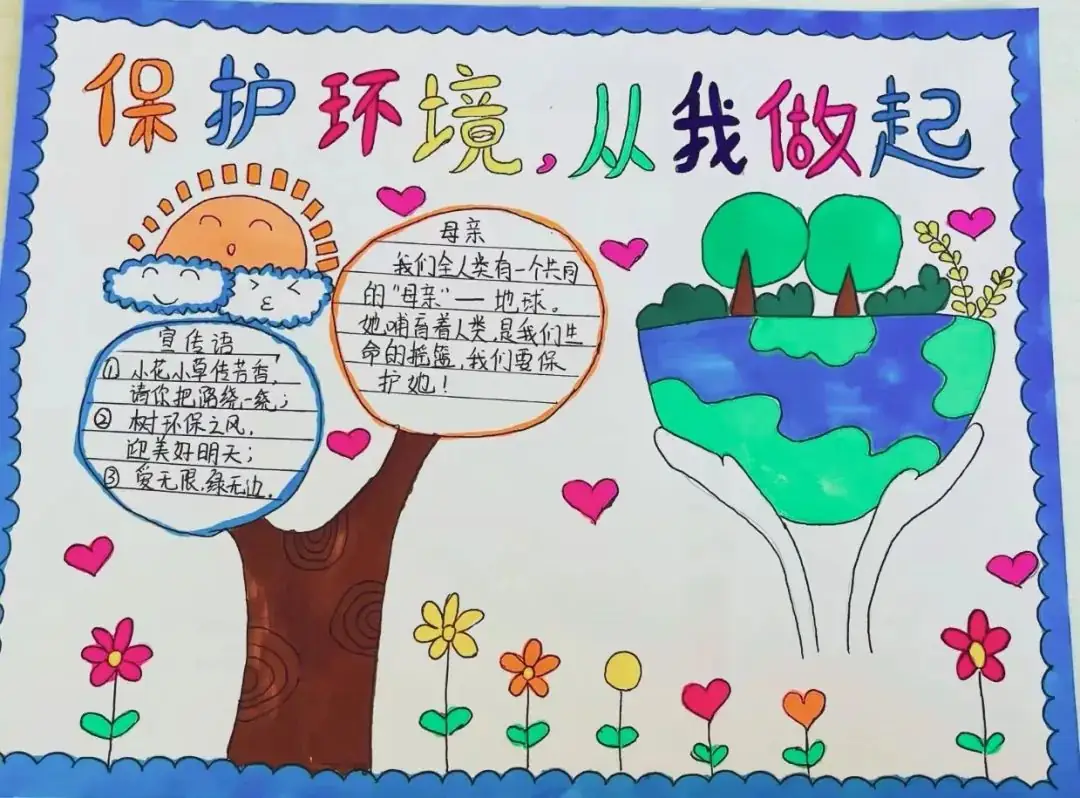 保护环境,从我做起
母亲
我们全人类有一个共同
的“母亲”—地球。
她哺育着人类,是我们生
命的摇篮,我们要保
护她!
宣传语
① 小花,小草传芳香,
请你把脚绕一绕;
② 树环保之风,
迎美好明天;
③ 爱无限,绿无边.